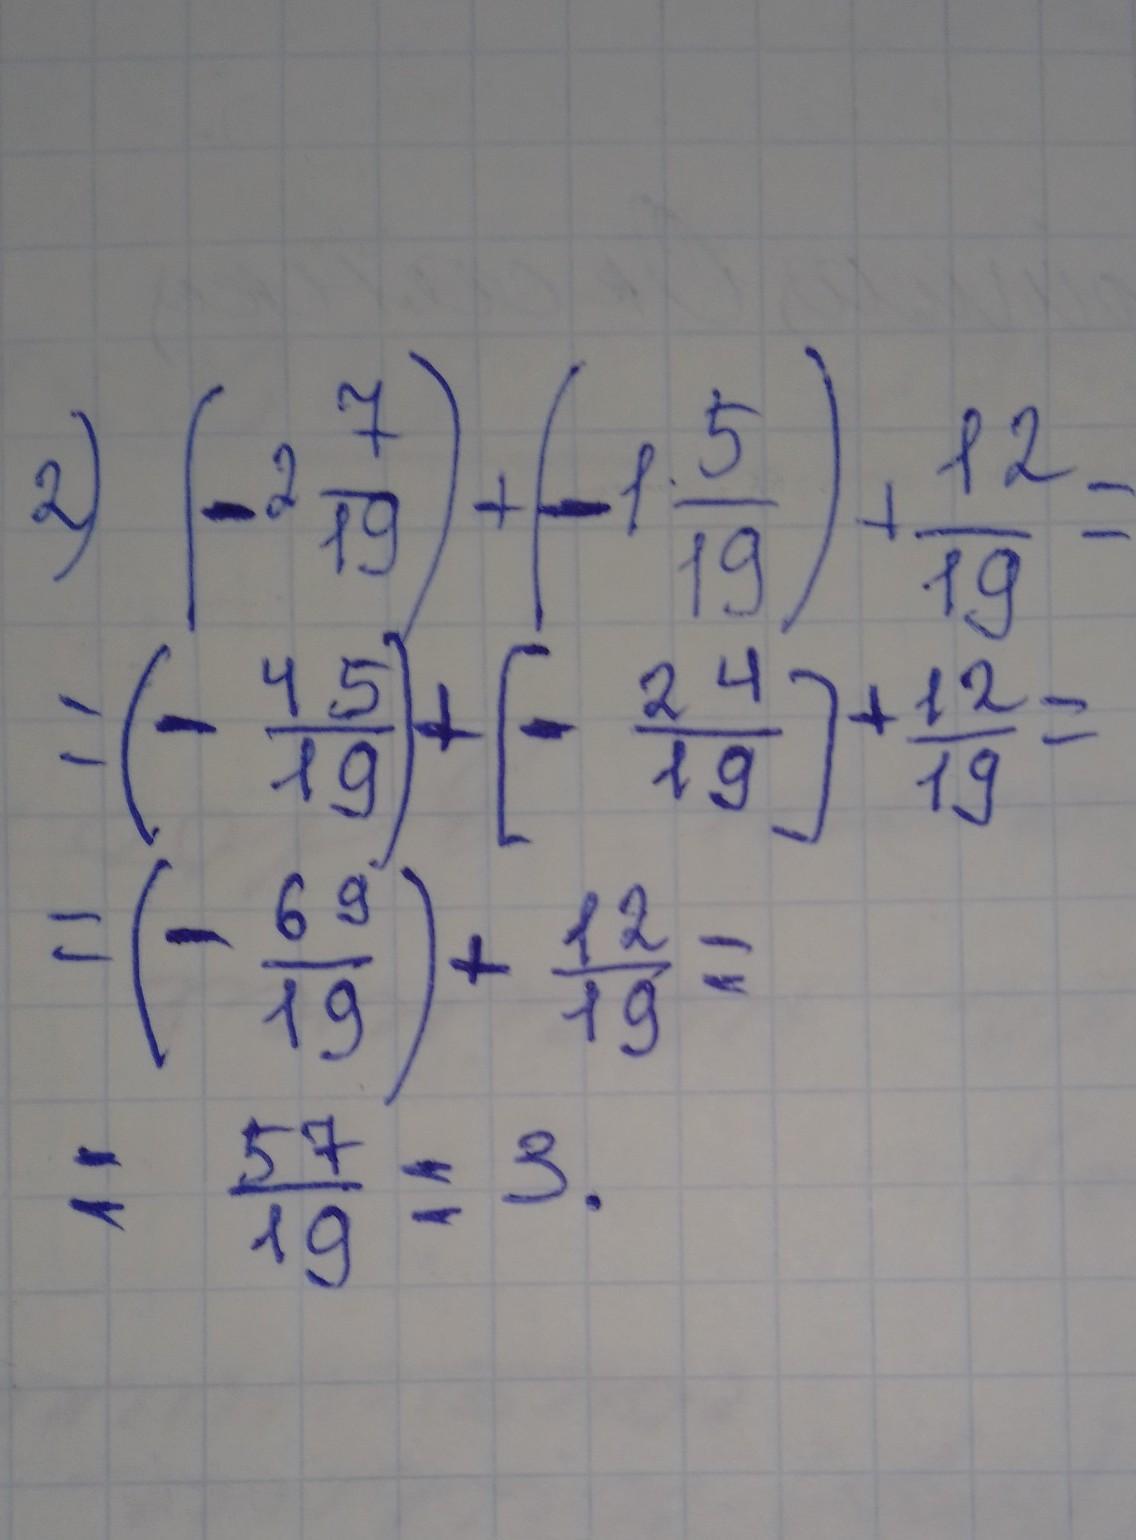 2) (-2 7/19) + (-1 5/19) + 12/19 =
= (- 45/19) + [- 24/19] + 12/19 =
= (- 69/19) + 12/19 =
= 57/19 = 3.